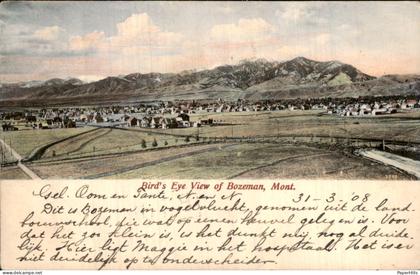 Bird's Eye View of Bozeman, Mont.
Gel. Oom en Tante, A. en N. 31-3-'08
Dit is Bozeman in vogelvlucht, genomen uit de land
bouwschool, die wat op een heuvel gelegen is. Voor
dat het zoo klein is, is het dunkt mij nogal duide
lijk. Hier ligt Maggie in het hospitaal. Het is er
niet duidelijk op te onderscheiden.